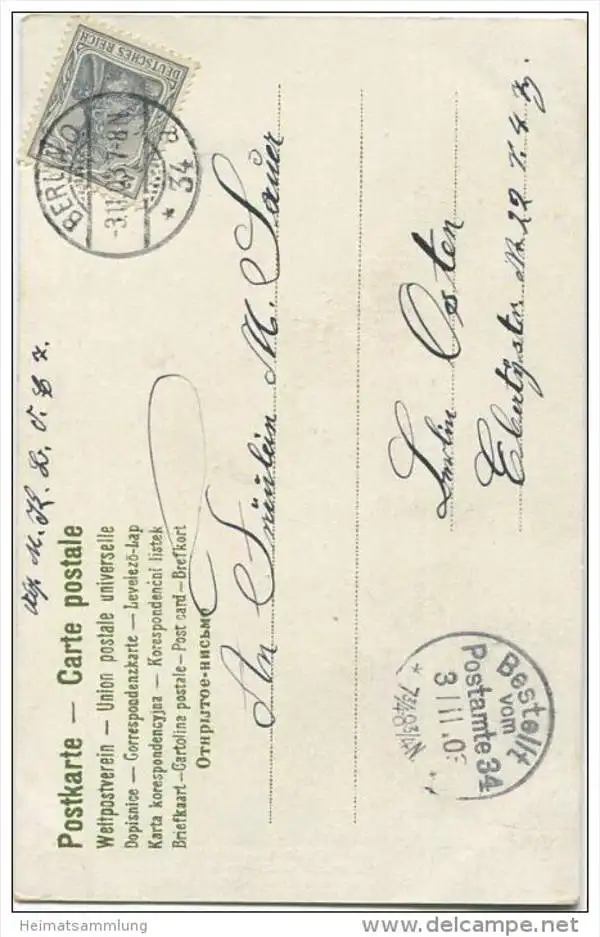 DEUTSCHES REICH
BERLIN O
7-8 N
34 a
Postkarte — Carte postale
Weltpostverein — Union postale universelle
Dopisnice — Correspondenzkarte — Levelező-Lap
Karta korespondencyjna — Korespondenční listek
Briefkaart—Cartolina postale—Post card—Brefkort
Открытое-письмо
An Fräulein M. Sauer
Berlin Osten
Ebertystr. No 22
Bestellt
vom
Postamte 34
3/11.0
Heimatsammlung
www.delcampe.net